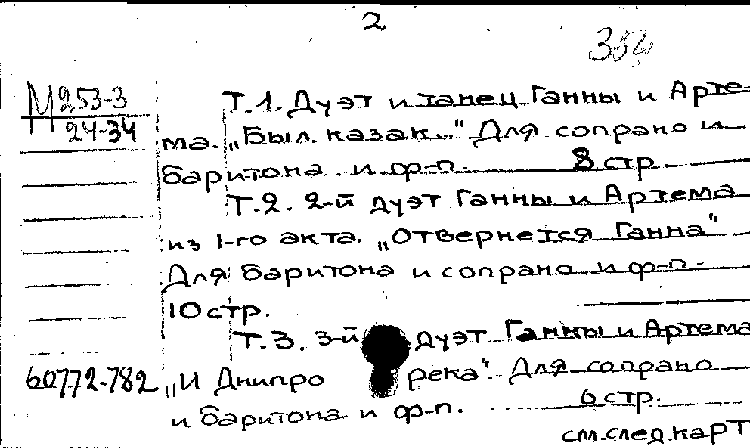 2
334
М 253-3
24-34
Т.1. Дуэт и танец Ганны и Арте-
ма. „Был казак..." Для сопрано и
баритона и ф-п. 8 стр.
Т.2. 2-й дуэт Ганны и Артема
из 1-го акта. „Отвернется Ганна"
Для баритона и сопрано и ф-п.
10 стр.
Т.3. 3-й дуэт Ганны и Артема
60772-782 „И Днипро река". Для сопрано
и баритона и ф-п. 6 стр.
см.след.карт